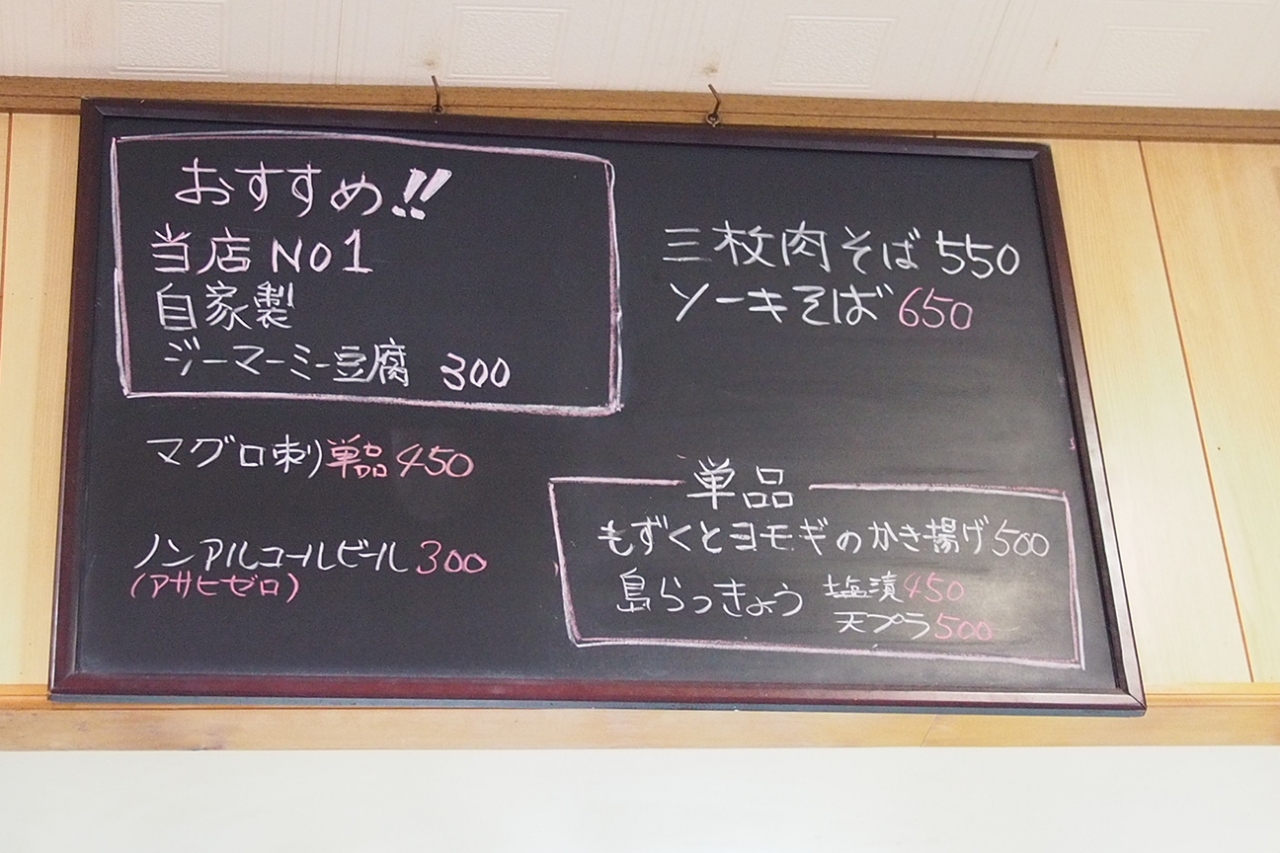 おすすめ!!
当店NO1
自家製
ジーマーミー豆腐 300
マグロ刺り単品450
ノンアルコールビール300
(アサヒゼロ)
三枚肉そば 550
ソーキそば650
単品
もずくとヨモギのかき揚げ500
島らっきょう 塩漬450
天プラ500